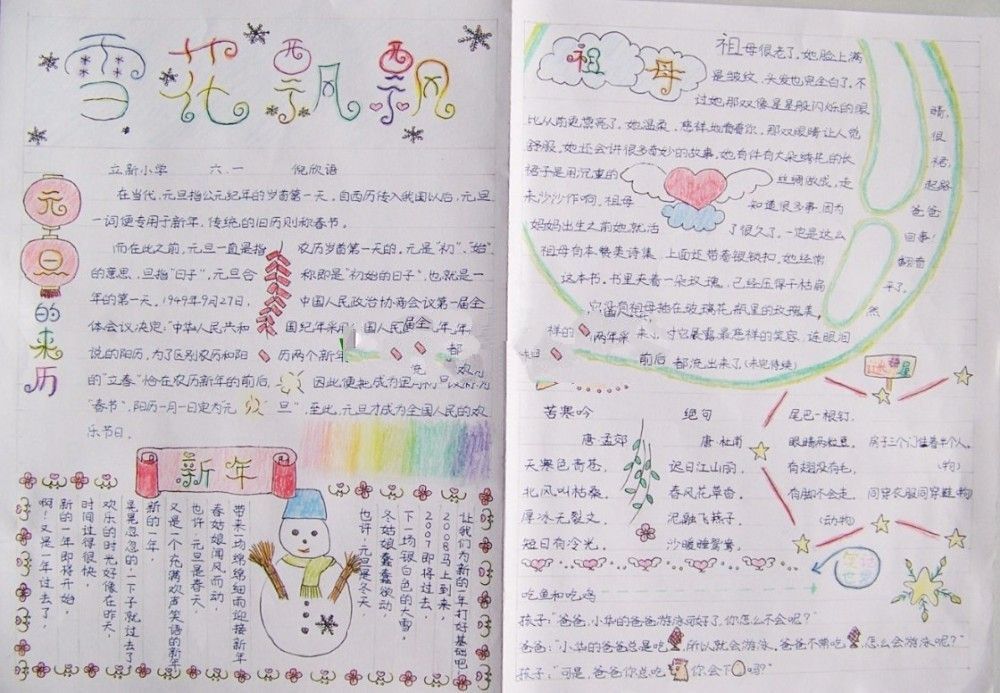 雪花飘飘
立新小学 六.一 倪欣语
元旦的来历
在当代,元旦指公元纪年的岁首第一天,自西历传入我国以后,元旦
一词便专用于新年,传统的旧历则称春节。
而在此之前,元旦一直是指农历岁首第一天的。元是“初”、“始”
的意思,旦指“日子”,元旦合称即是“初始的日子”,也就是一
年的第一天。1949年9月27日,中国人民政治协商会议第一届全
体会议决定:“中华人民共和国纪年采用
说的阳历,为了区别农历和阳历两个新年
的“立春”恰在农历新年的前后,因此便把
“春节”,阳历一月一日定为元旦”,至此,元旦才成为全国人民的欢
乐节日。
新年
让我们为新的一年打好基础吧
2008马上到来,
2007即将过去,
下一场银白色的大雪,
冬姑娘蠢蠢欲动
也许,元旦是冬天,
带来一场绵绵细雨迎接新年
春姑娘闻风而动
也许,元旦是春天,
又是一个充满欢声笑语的新年
新的一年,
晃忽忽的一下子就过去了,
欢乐的时光好像在昨天,
时间过得很快,
新的一年即将开始,
啊!又是一年过去了,
祖母
祖母很老了,她脸上满
是皱纹,头发也完全白了,不
过她那双像星星般闪烁的眼睛,
比从前更漂亮了,她温柔、慈祥地看着你,那双眼睛让人觉很
舒服,她还会讲很多奇妙的故事,她有件有大朵绣花的长裙,
裙子是用沉重的丝绸做成,走起路
来沙沙作响,祖母知道很多事,因为爸爸
妈妈出生之前她就活了很久了,一定是这么回事!
祖母有本赞美诗集,上面还带着银锁扣,她经常翻看
这本书,书里夹着一朵玫瑰,已经压得干枯扁平了,
它没有祖母插在玻璃花瓶里的玫瑰美,然
样的 来,对它展露最慈祥的笑容,连眼泪
都流出来了。(未完待续)
苦寒吟
唐·孟郊
天寒色青苍,
北风叫枯桑,
厚冰无裂文,
短日有冷光。
绝句
唐·杜甫
迟日江山丽,
春风花草香,
泥融飞燕子,
沙暖睡鸳鸯。
尾巴一根钉,
眼睛两粒豆,
有翅没有毛,
有脚不会走,
(动物)
房子三个门住着半个人,
(物)
同穿衣服同穿鞋
吃鱼和吃鸡
孩子:“爸爸,小华的爸爸游泳可好了,你怎么不会呢?”
爸爸:“小华的爸爸总是吃 所以就会游泳,爸爸不常吃 怎么会游泳呢?”
孩子:“可是,爸爸你总吃 你会下 吗?”